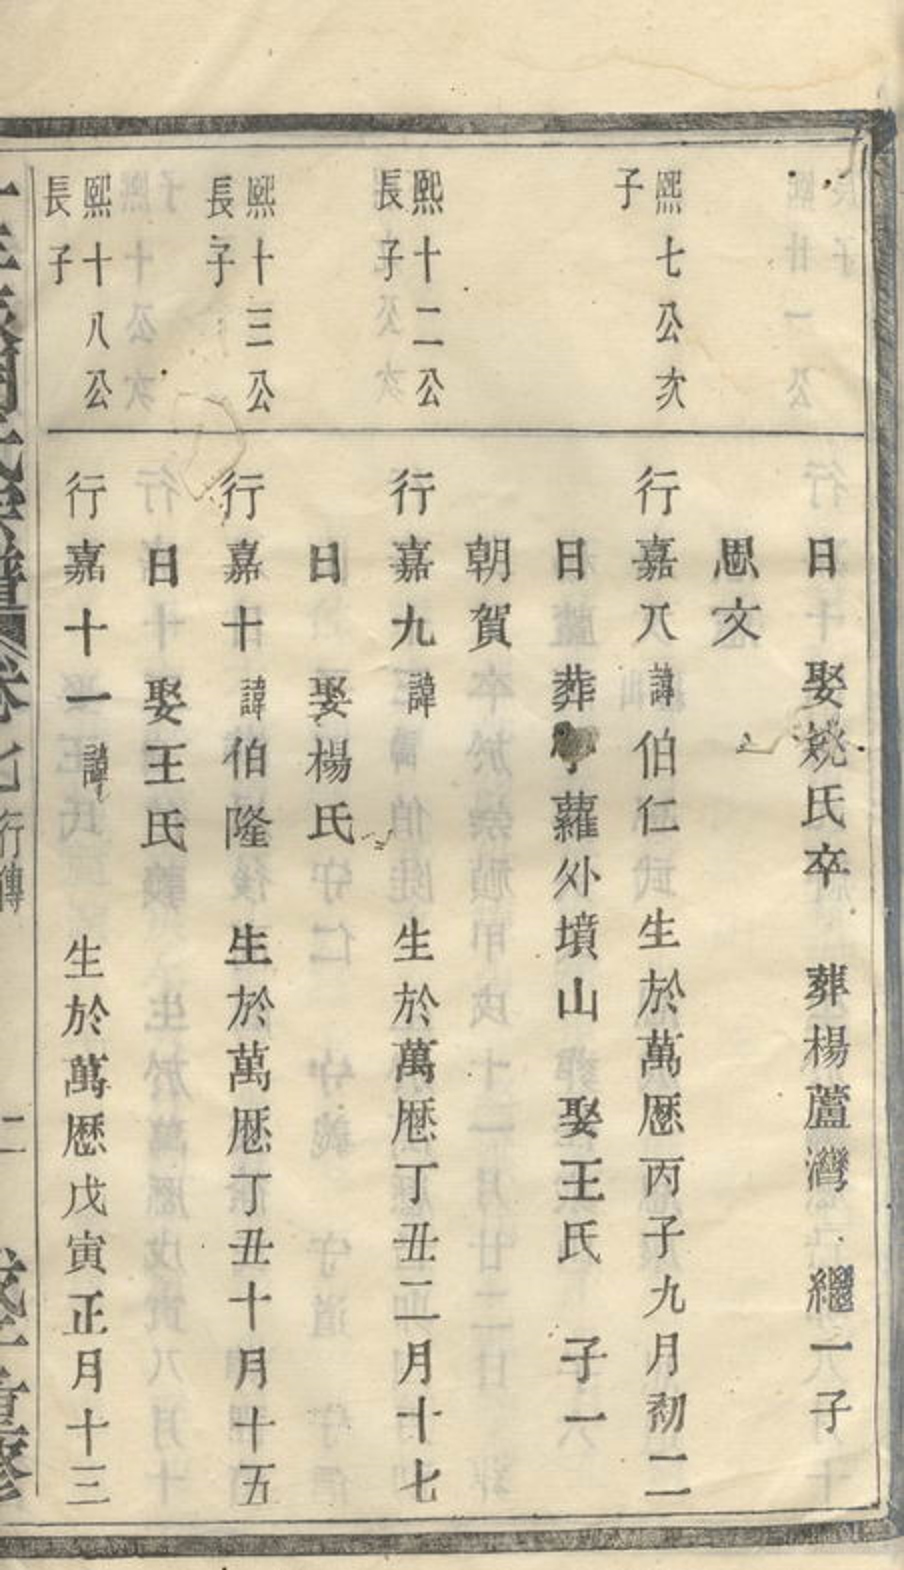 日 娶姚氏卒 葬楊蘆灣 繼一子
思文
熙七公次
子
行嘉八諱伯仁 生於萬厯丙子九月初二
日 葬 蘿外墳山 娶王氏 子一
朝賀
熙十二公
長子
行嘉九諱 生於萬厯丁丑二月十七
日 娶楊氏
熙十三公
長子
行嘉十諱伯隆 生於萬厯丁丑十月十五
日 娶王氏
熙十八公
長子
行嘉十一諱 生於萬厯戊寅正月十三
卷七 行傳 二 重修